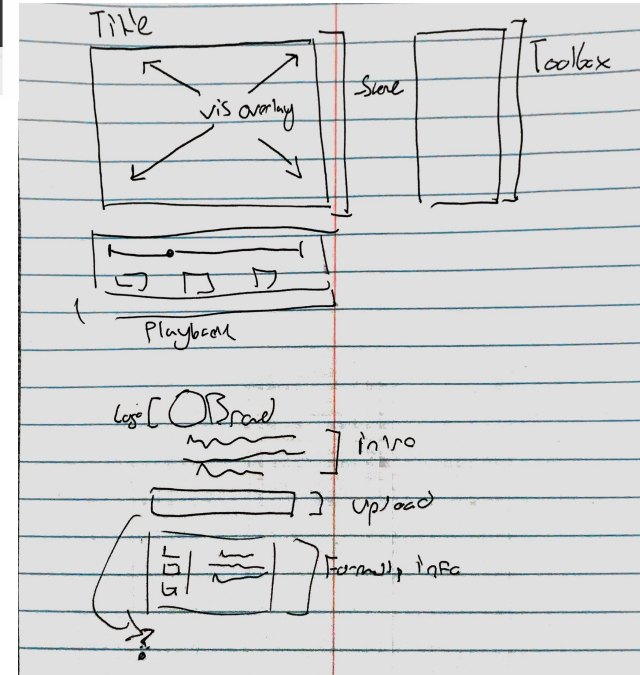 Title
vis overlay
Scene
Toolbox
Playback
Logo
Brand
intro
upload
Formats, info
?